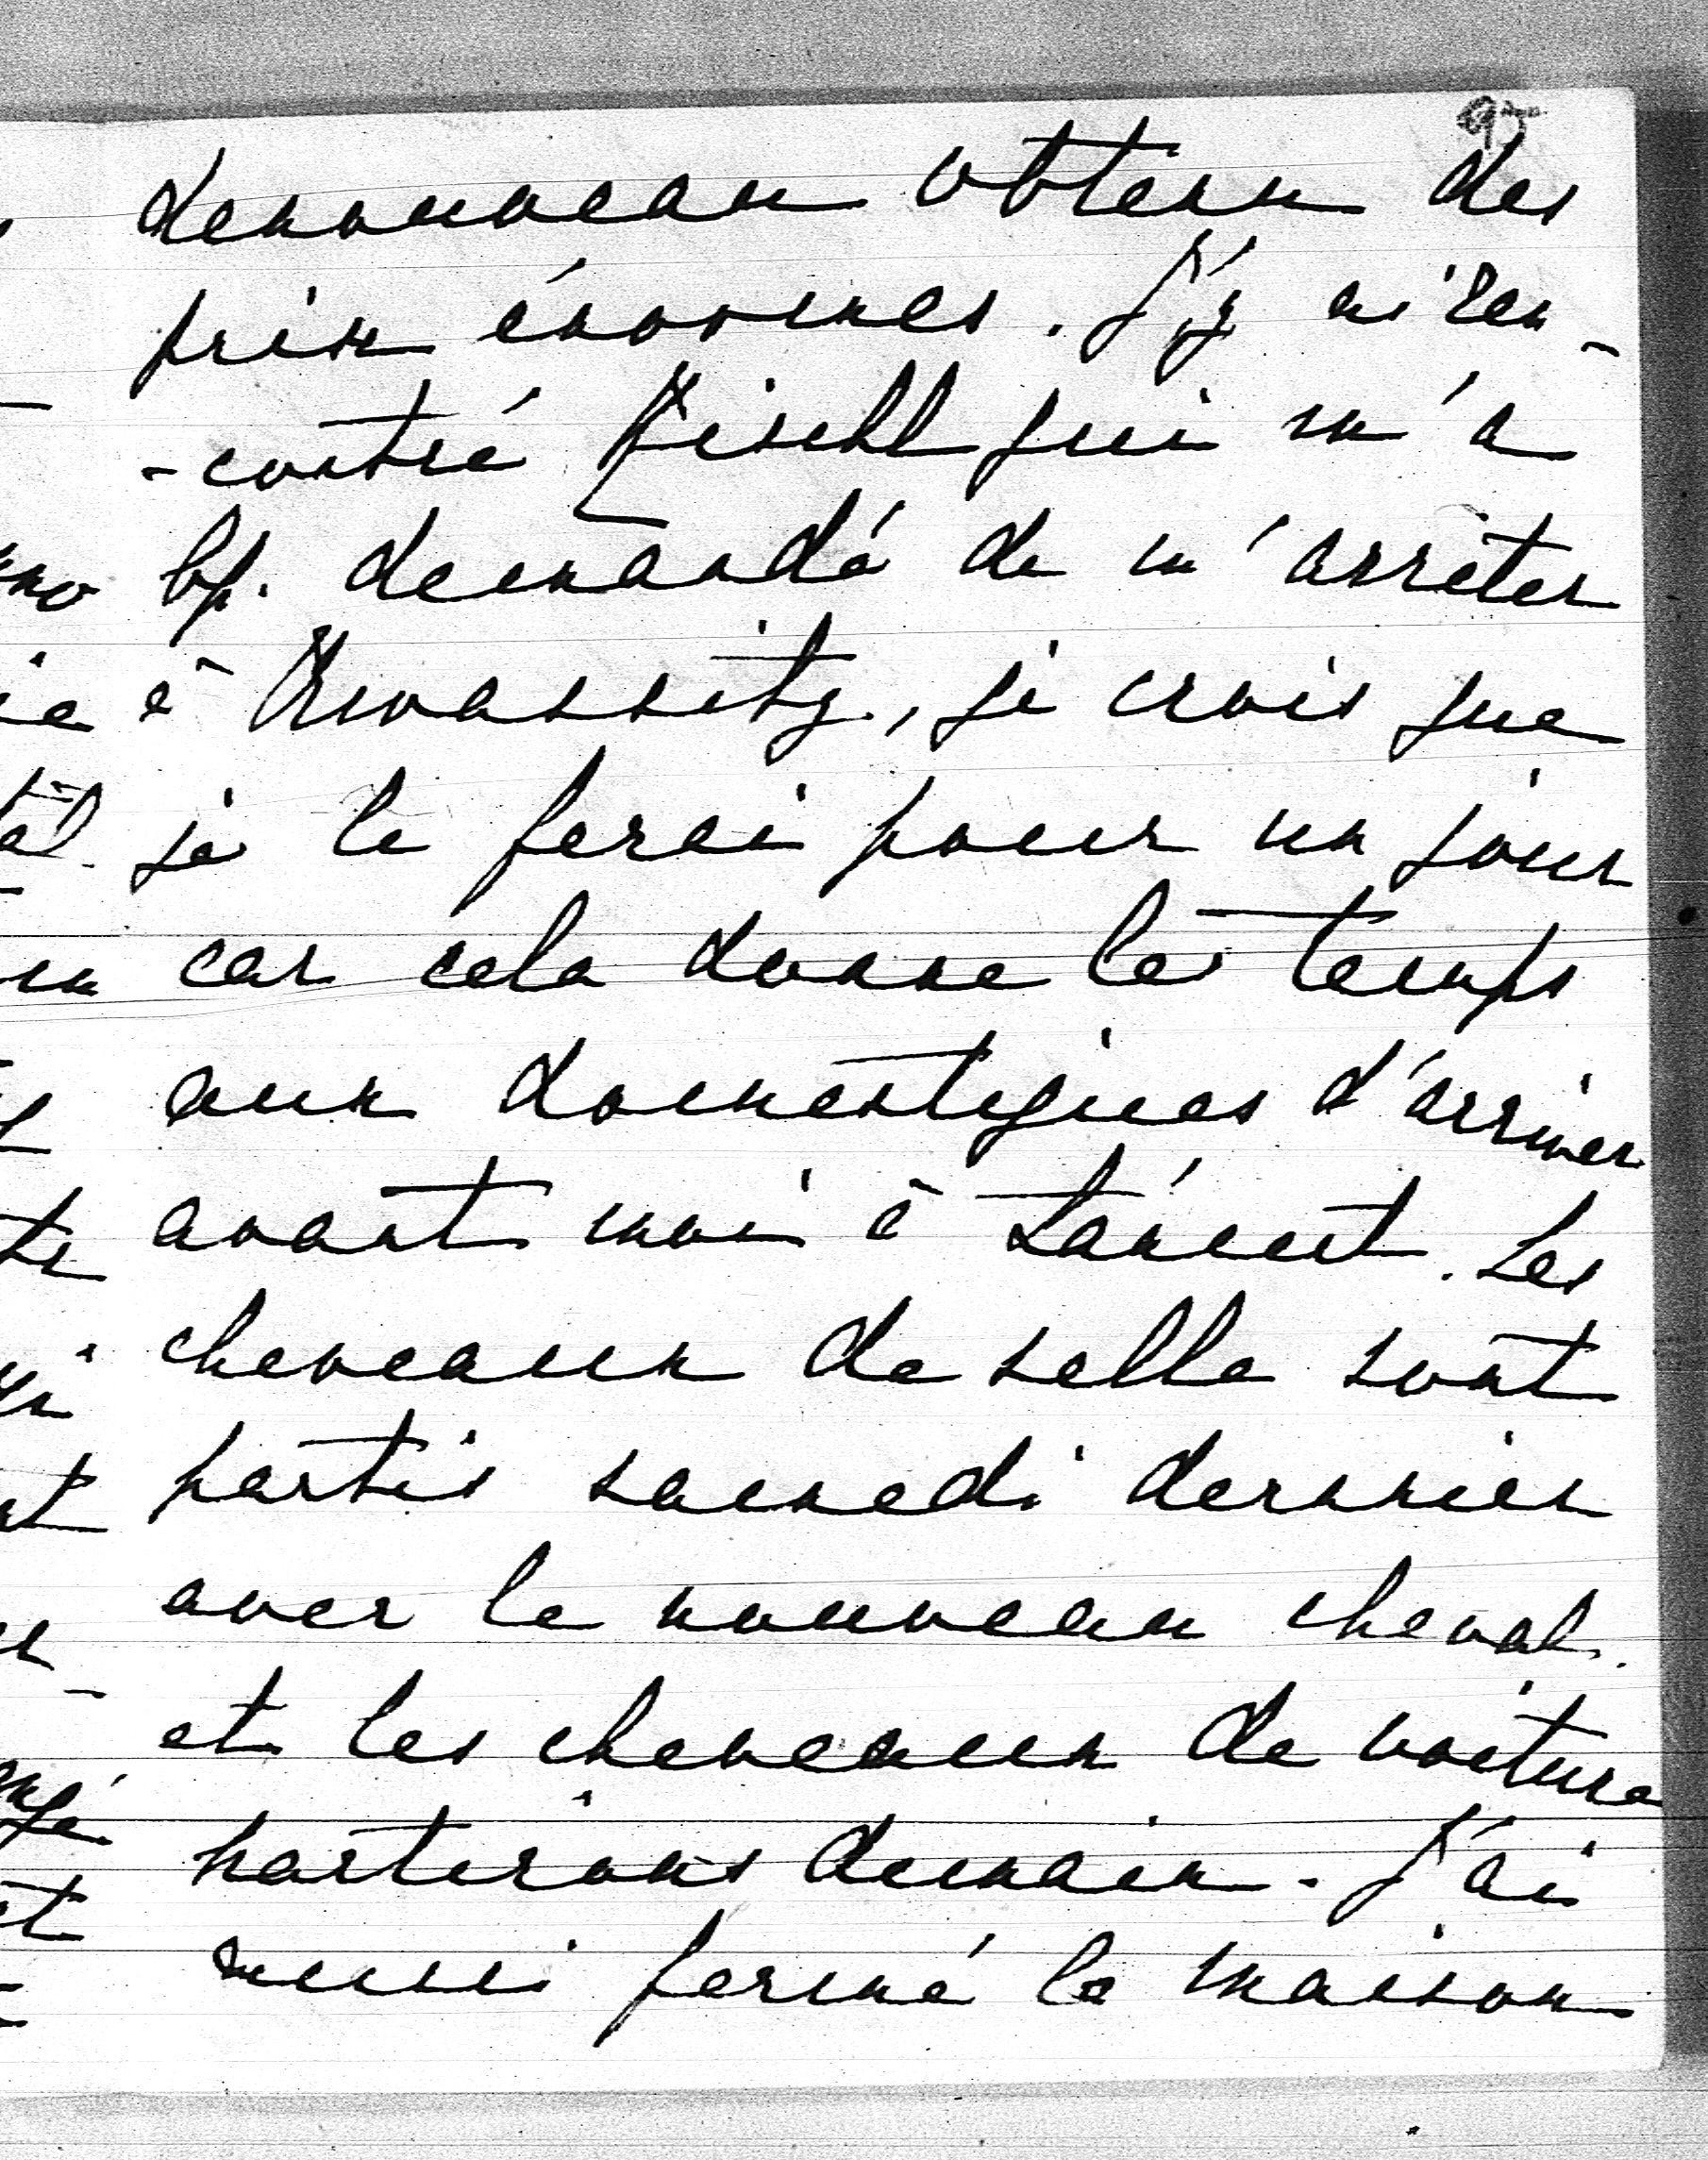 denouveau obtenu des
prix énormes. J'y ai ren-
-contré Kischl qui m'a
bp. demandé de m'arrêter
à Kwassitz, je crois que
je le ferai pour un jour
car cela donne le temps
aux domestiques d'arriver
avant moi à Láncut. Les
cheveaux de selle sont
partis samedi dernier
avec le nouveau cheval.
et les cheveaux de voiture
partirons demain. J'ai
fermé la maison